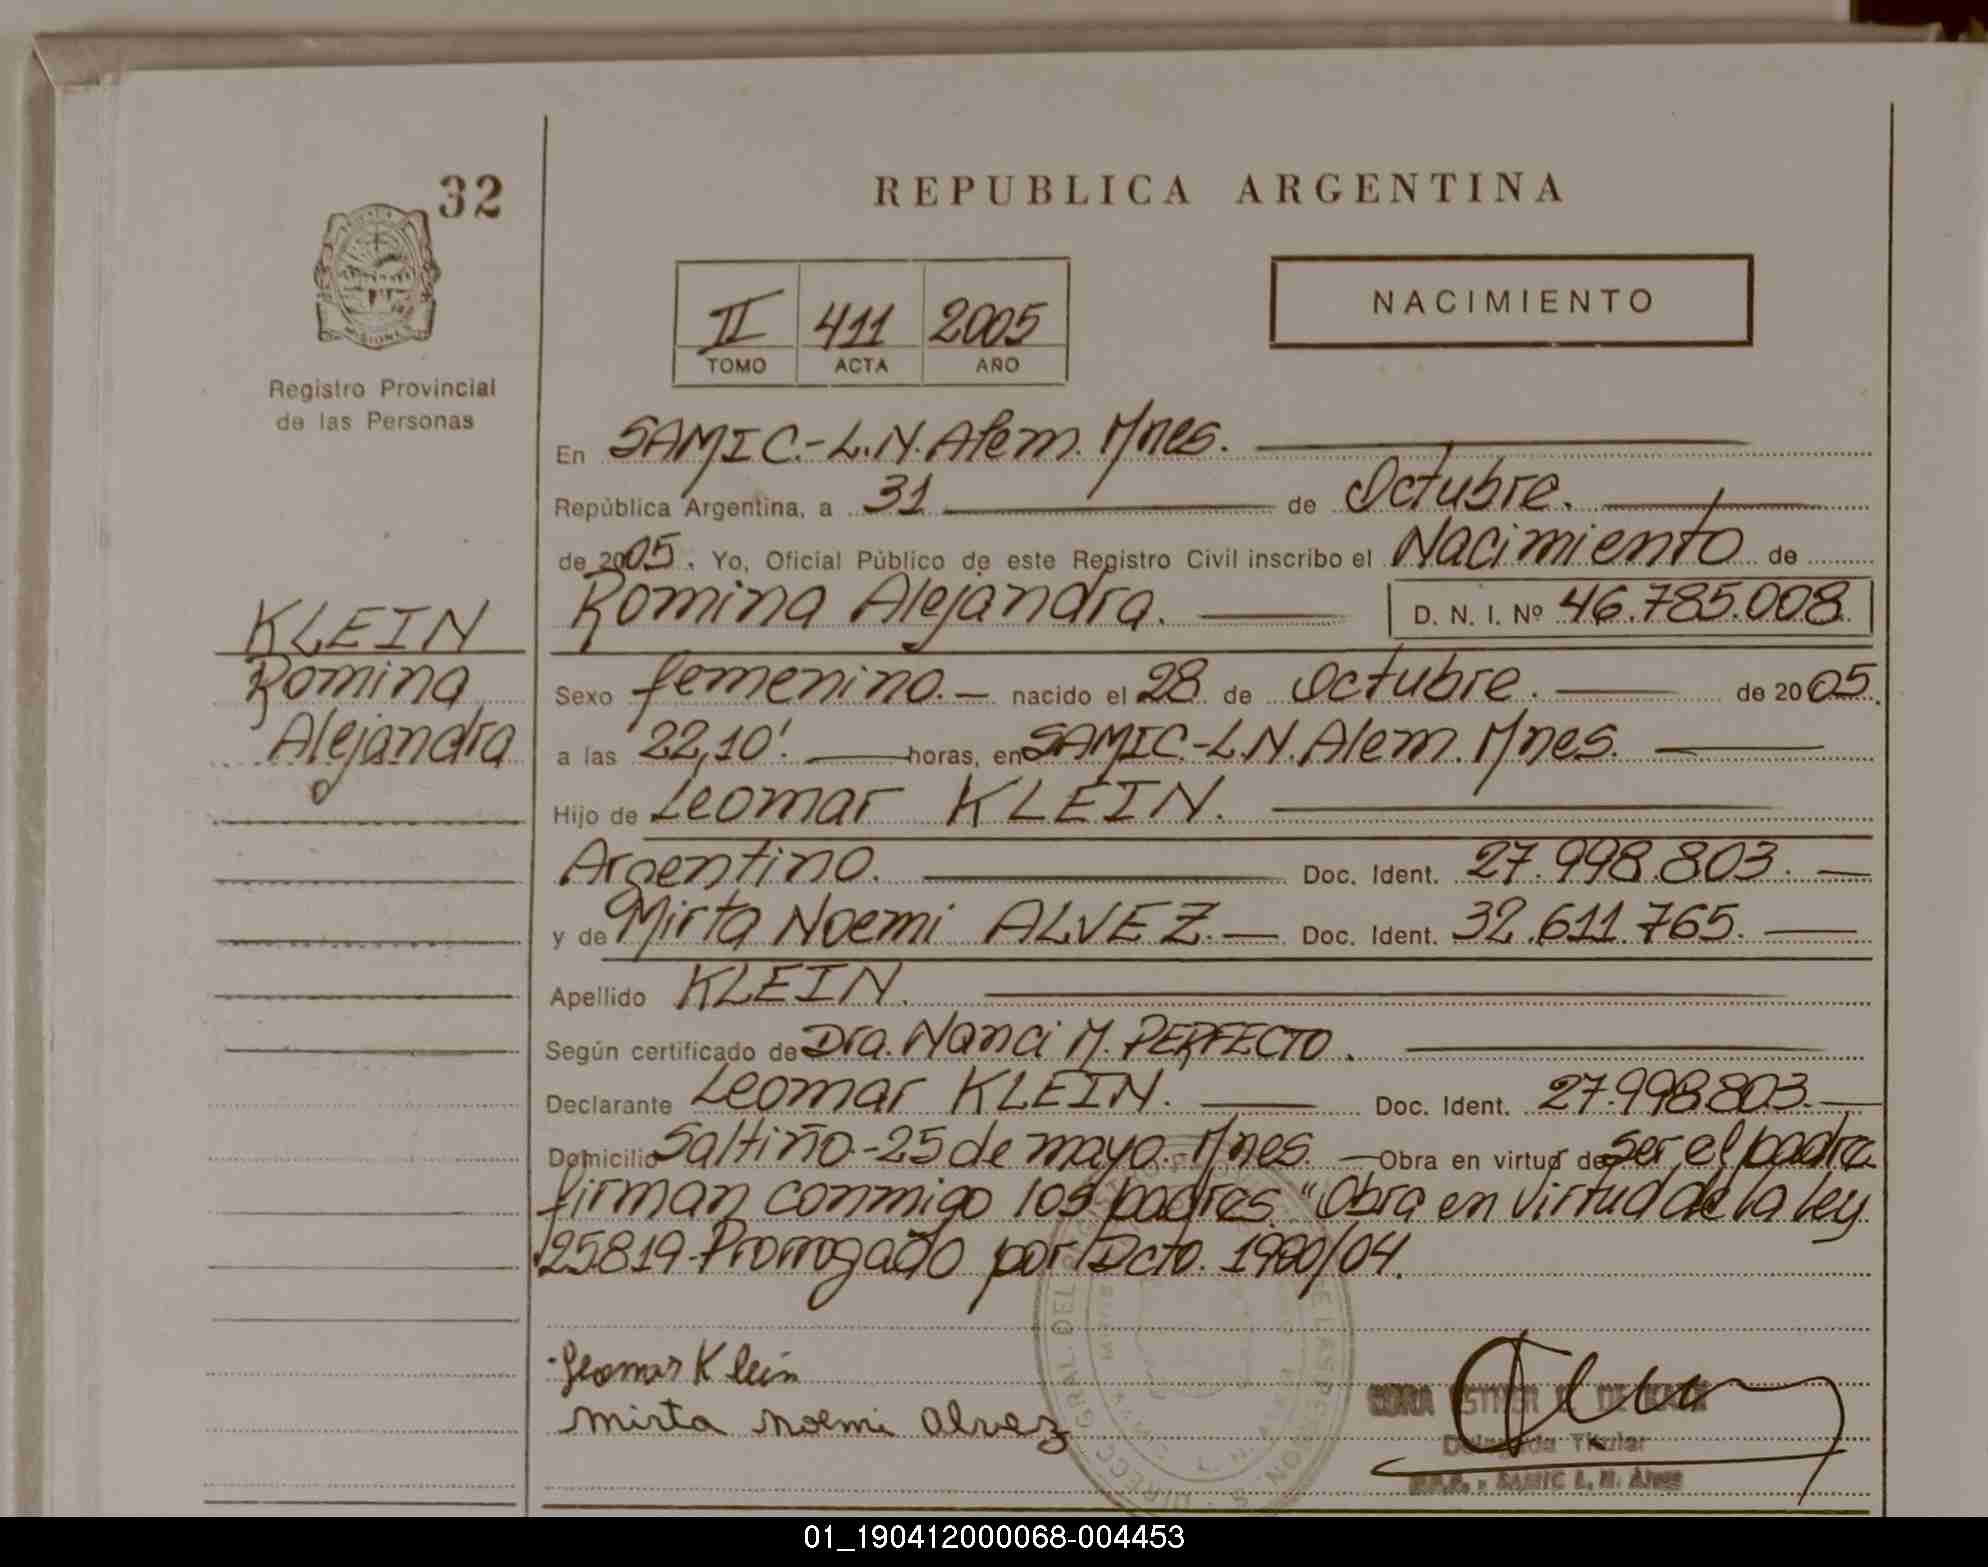 32
REPUBLICA ARGENTINA
NACIMIENTO
II 411 2005
TOMO ACTA AÑO
Registro Provincial
de las Personas
En SAMIC.-L.N.Alem. Mnes.
República Argentina, a 31 de Octubre.
de 2005. Yo, Oficial Público de este Registro Civil inscribo el Nacimiento de
Romina Alejandra. D. N. I. Nº 46.785.008
KLEIN
Romina
Alejandra
Sexo femenino.- nacido el 28 de Octubre. de 2005.
a las 22,10'. horas, en SAMIC-L.N.Alem. Mnes.
Hijo de Leomar KLEIN.
Argentino. Doc. Ident. 27.998.803.
y de Mirta Noemi ALVEZ.- Doc. Ident. 32.611.765.
Apellido KLEIN.
Según certificado de Dra. Nanci M. PERFECTO.
Declarante Leomar KLEIN. Doc. Ident. 27.998.803.
Domicilio Saltiño-25 de mayo. Mnes. - Obra en virtud de ser el padre
firman conmigo los padres. "Obra en virtud de la ley
25819-Prorrogado por Dcto. 1990/04.
Leomar Klein
Mirta Noemi Alvez
Delegada Titular
SAMIC L. N. Alem
01_190412000068-004453